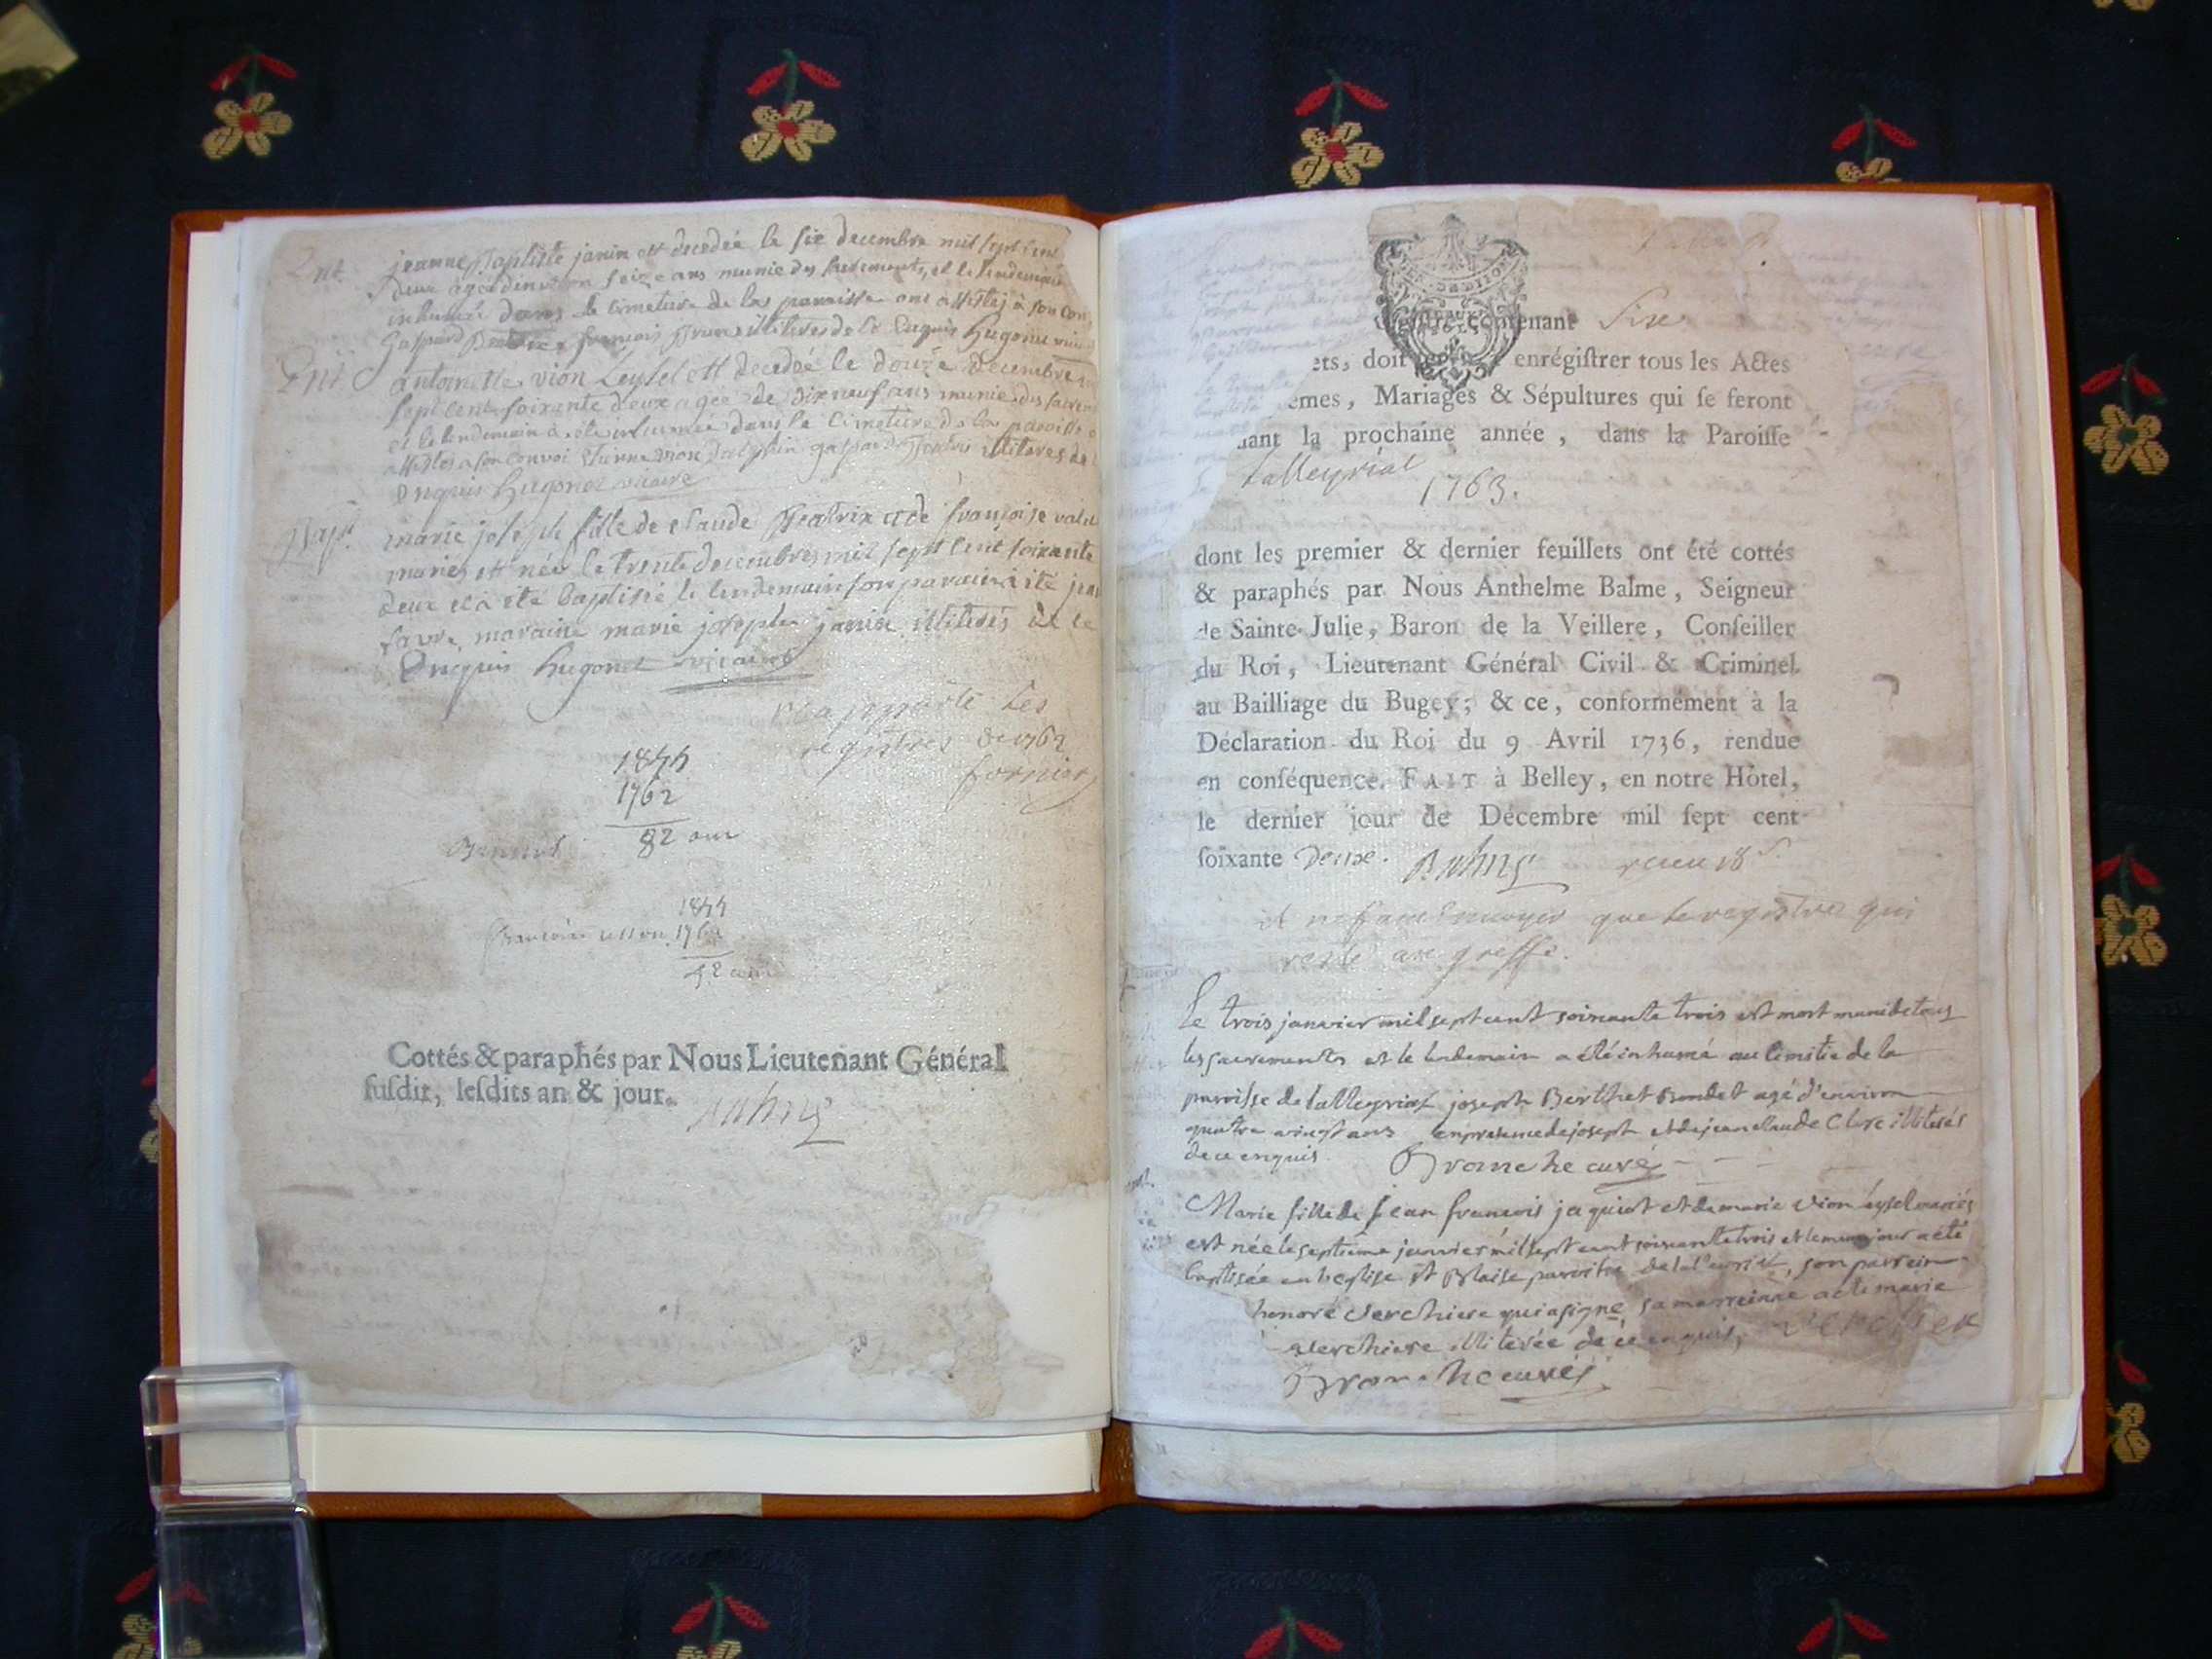 Ent. jeanne Baptiste janin est decedée le six decembre mil sept cent
deux agée denviron seize ans munie des sacrements, et le lendemain
inhumée dans le cimetiere de la paroisse ont assistés à son con
Gaspard françois illiteres de ce Enquis Hugonet
Ent antoinette vion Leysel est decedée le douze decembre
sept cent soixante deux agée de dixneuf ans munie des sacrem
et le lendemain à eté inhumée dans le Cimetiere de la paroisse
assistés a son convoi vion Dalphin gaspard illiteres de
Enquis Hugonet vicaire
Bapt. marie joseph fille de claude Beatrix et de françoise
mariés est née le trente decembre mil sept cent soixante
deux et à eté baptisée le lendemain son parain à été jean
favre, maraine marie josephe janin illiterés de ce
Enquis Hugonet vicaire
raporté Les
registres de 1762
fornier
1844
1762
82 ans
1844
1762
82 ans
Cottés & paraphés par Nous Lieutenant Général
susdit, lesdits an & jour.
contenant Six
ets, doit enrégistrer tous les Actes
emes, Mariages & Sépultures qui se feront
dant la prochaine année, dans la Paroisse
Lalleyriat
1763.
dont les premier & dernier feuillets ont été cottés
& paraphés par Nous Anthelme Balme, Seigneur
de Sainte-Julie, Baron de la Veillere, Conseiller
du Roi, Lieutenant Général Civil & Criminel
au Bailliage du Bugey; & ce, conformément à la
Déclaration du Roi du 9 Avril 1736, rendue
en conséquence. FAIT à Belley, en notre Hôtel,
le dernier jour de Décembre mil sept cent
soixante Deux. receu 18 s.
il ne faut Envoyer que le registre qui
reste au greffe.
Le trois janvier mil sept cent soixante trois est mort muni de tous
les sacrements et le lendemain a été inhumé au cimitie de la
paroisse de lalleyriat joseph Berthet Bondet agé d'environ
quatre vingt ans en presence de joseph et de jean claude Clerc illiterés
de ce enquis. Branche curé
Marie fille de jean francois jaquiot et de marie vion leysel mariés
est née le septieme janvier mil sept cent soixante trois et le meme jour a été
baptisée en l'eglise st Blaise paroisse de lalleyriat, son parrein
honoré verchiere qui a signé, sa marreinne a eté marie
verchiere illiterée de ce enquis,
Branche curé